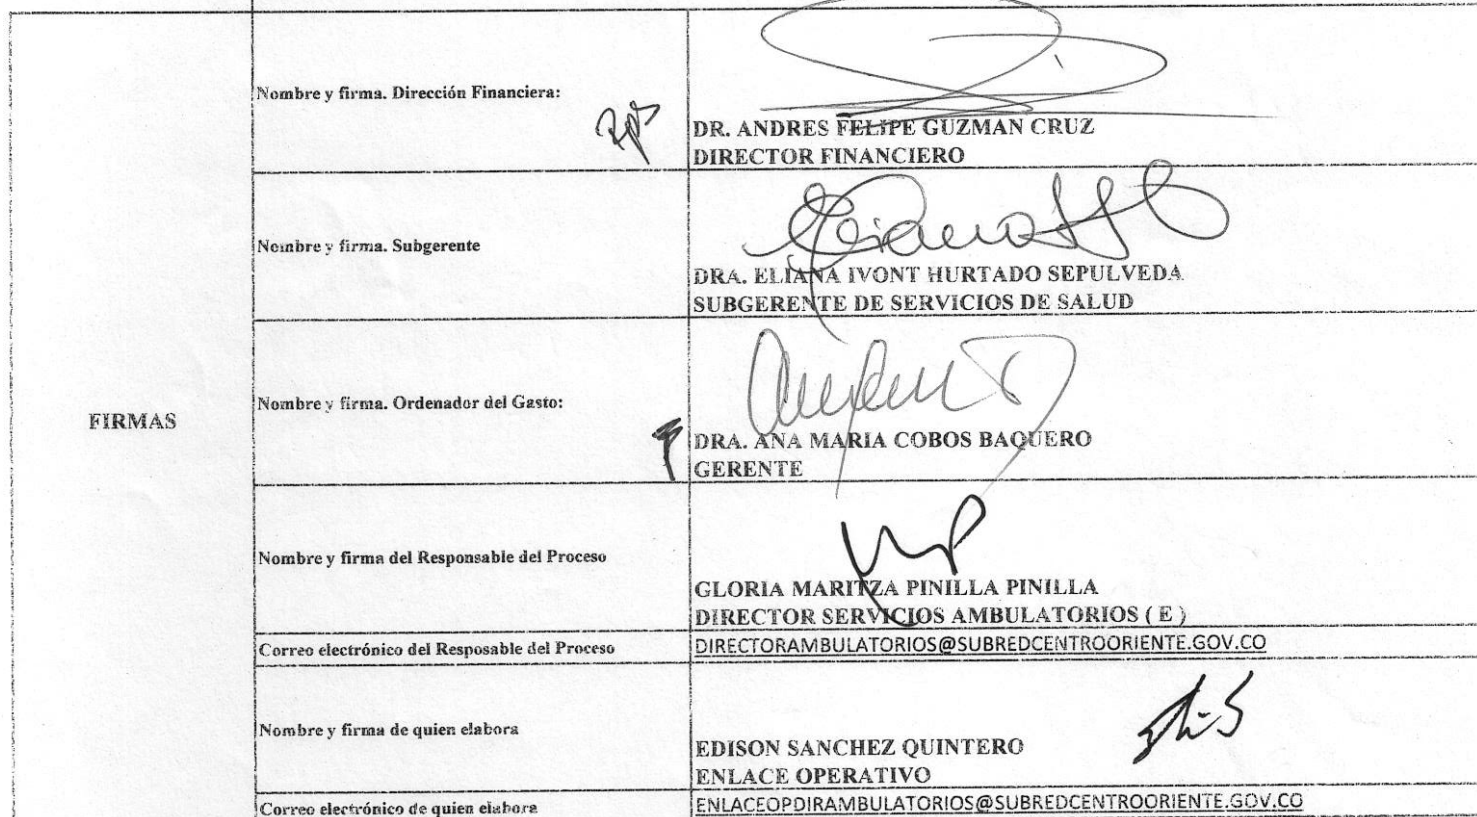 Nombre y firma. Dirección Financiera:
DR. ANDRES FELIPE GUZMAN CRUZ
DIRECTOR FINANCIERO
Nombre y firma. Subgerente
DRA. ELIANA IVONT HURTADO SEPULVEDA
SUBGERENTE DE SERVICIOS DE SALUD
FIRMAS
Nombre y firma. Ordenador del Gasto:
DRA. ANA MARIA COBOS BAQUERO
GERENTE
Nombre y firma del Responsable del Proceso
GLORIA MARITZA PINILLA PINILLA
DIRECTOR SERVICIOS AMBULATORIOS ( E )
Correo electrónico del Resposable del Proceso
DIRECTORAMBULATORIOS@SUBREDCENTROORIENTE.GOV.CO
Nombre y firma de quien elabora
EDISON SANCHEZ QUINTERO
ENLACE OPERATIVO
Correo electrónico de quien elabora
ENLACEOPDIRAMBULATORIOS@SUBREDCENTROORIENTE.GOV.CO